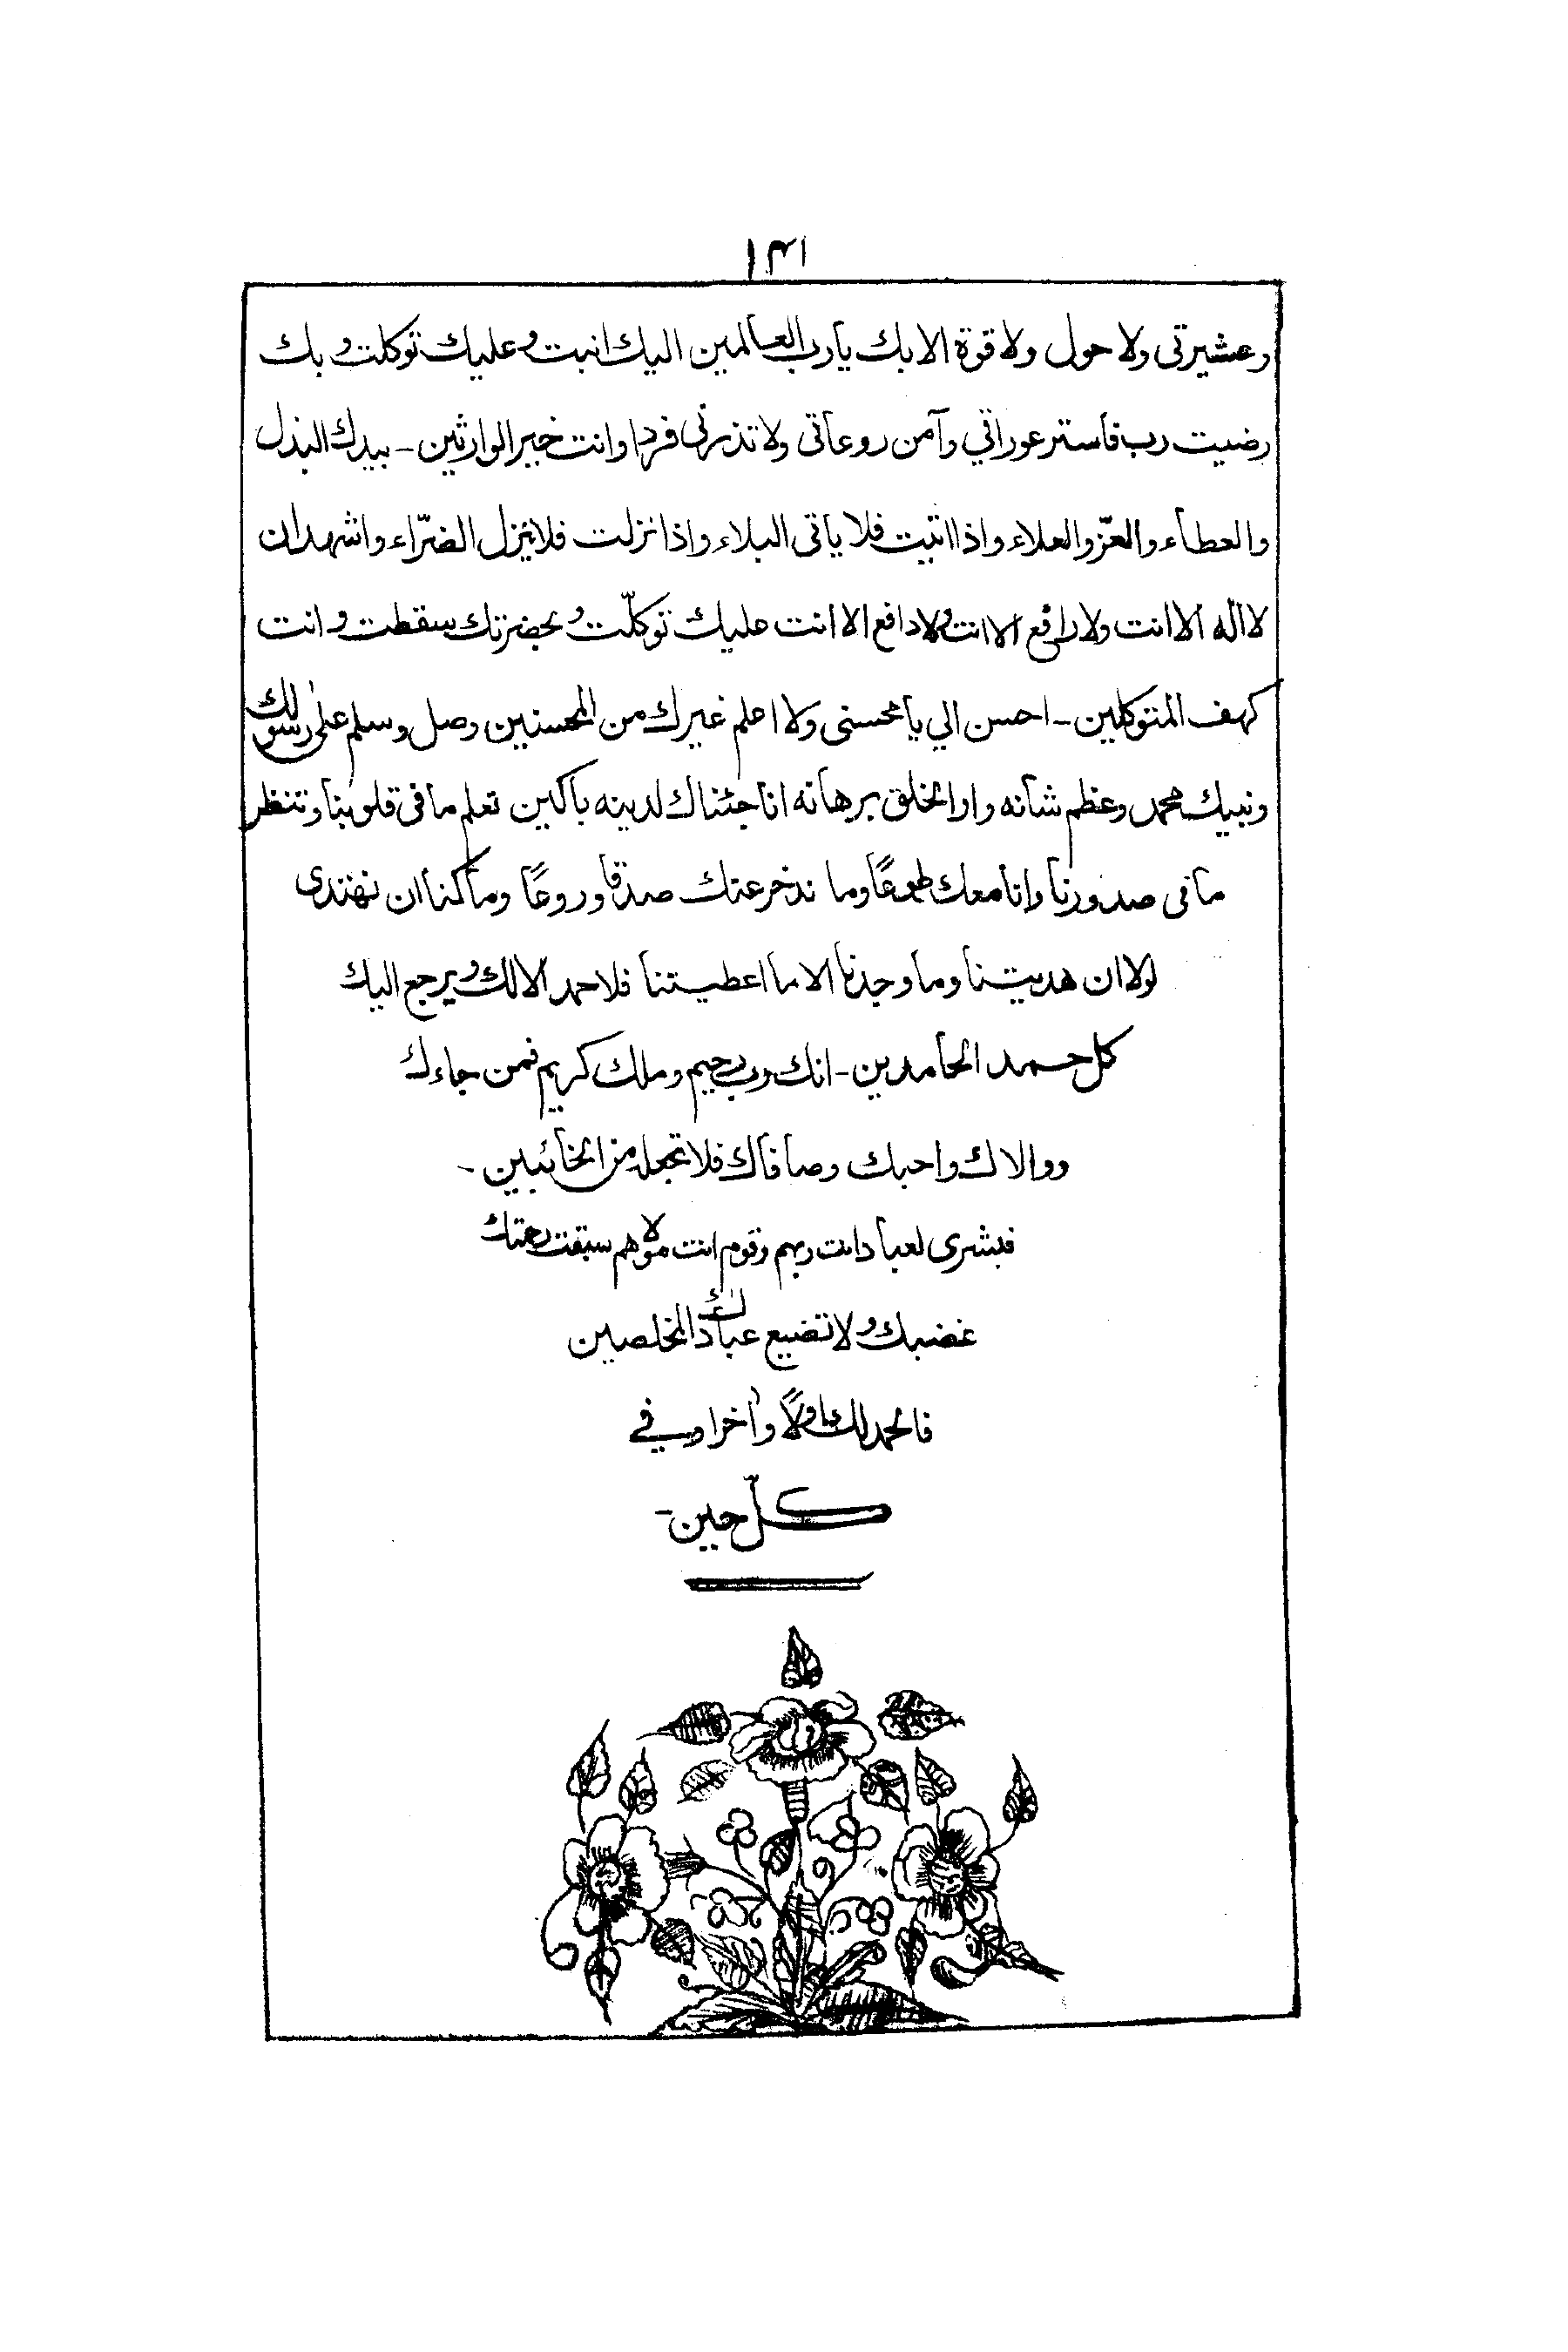 ١٣١
وعشيرتى ولا حول ولا قوة الا بك يا رب العالمين اليك انبت وعليك توكلت وبك
رضيت رب فاستر عوراتي وآمن روعاتى ولا تذرنى فردا وانت خير الوارثين - بيدك البذل
والعطاء والعزّ والعلاء واذا اتيت فلا ياتى البلاء واذا نزلت فلا ينزل الضرّاء واشهد ان
لا اله الا انت ولا رافع الا انت ولا دافع الا انت عليك توكلّت وبحضرتك سقطت وانت
كهف المتوكلين - احسن الي يا محسنى ولا اعلم غيرك من المحسنين وصل وسلم على رسولك
ونبيك محمد وعظم شأنه وار الخلق برهانه انا جئناك لدينه باكين تعلم ما فى قلوبنا وتنظر
ما فى صدورنا وانا معك طوعًا وما ندخر عنك صدقا وروعًا وما كنا ان نهتدى
لولا ان هديتنا وما وجدنا الا ما اعطيتنا فلا حمد الا لك ويرجع اليك
كل حمد الحامدين - انك رب رحيم وملك كريم فمن جاءك
ووالاك واحبك وصافاك فلا تجعله من الخائبين -
فبشرى لعباد انت ربهم وقوم انت مولاهم سبقت رحمتك
غضبك ولا تضيع عبادك المخلصين
فالحمد لك اولًا وآخرا وفي
كلّ حين -